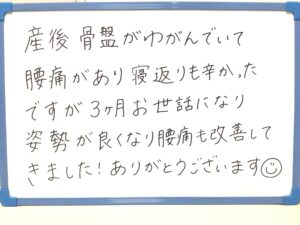 産後骨盤がゆがんでいて
腰痛があり寝返りも辛かった
ですが3ヶ月お世話になり
姿勢が良くなり腰痛も改善して
きました!ありがとうございます☺